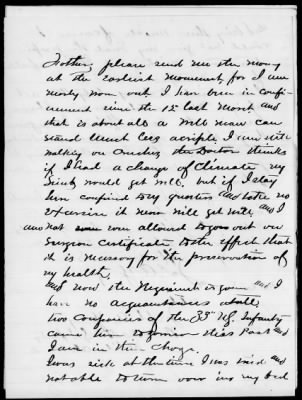 Mother, please send me the money
at the earliest moment, for I am
nearly worn out I have been in confi-
nement since the 1st last Month and
that is about all a well man can
stand much less a criple. I am still
walking on Crutches the Doctor thinks
if I had a change of Climate my
would get well. but if I stay
here confined to my quarters and take no
Exercise it never will get well, and I
am not even allowed to go on out our
Surgeon Certificate to the effect that
it is necessary for the preservation of
my health,
and now the Regiment is gone and I
have no acquaintances atall,
two companies of the 33 Infantry
came here to garrison this Post and
I am in their charge.
I was sick at the time I was tried and
not able to turn over in my bed